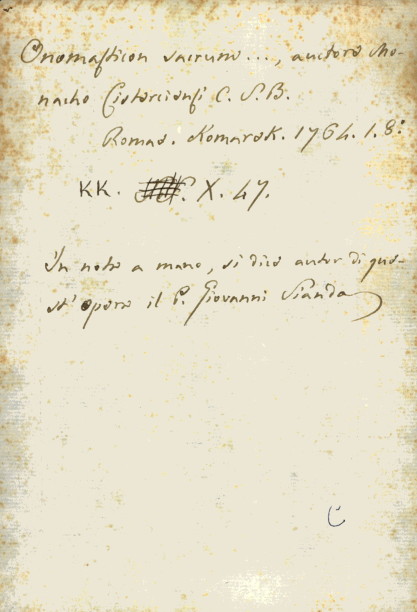 Onomasticon sacrum..., auctore Mo-
nacho Cisterciensi C. S. B.
Romae. Komarek. 1764. 1. 8:
KK. X. 47.
In note a mano, si dice autor di que-
st' opera il P. Giovanni Sianda